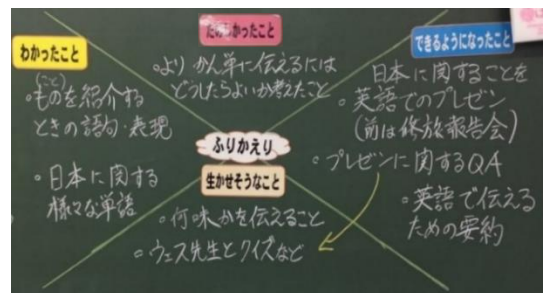 わかったこと
(こと)
・ものを紹介する
ときの語句・表現
・日本に関する
様々な単語
たのしかったこと
・よりかん単に伝えるには
どうしたらよいか考えたこと
できるようになったこと
日本に関することを
・英語でのプレゼン
(前は修旅報告会)
・プレゼンに関するQA
・英語で伝える
ための要約
ふりかえり
生かせそうなこと
・何味かを伝えること
・ウェス先生とクイズなど